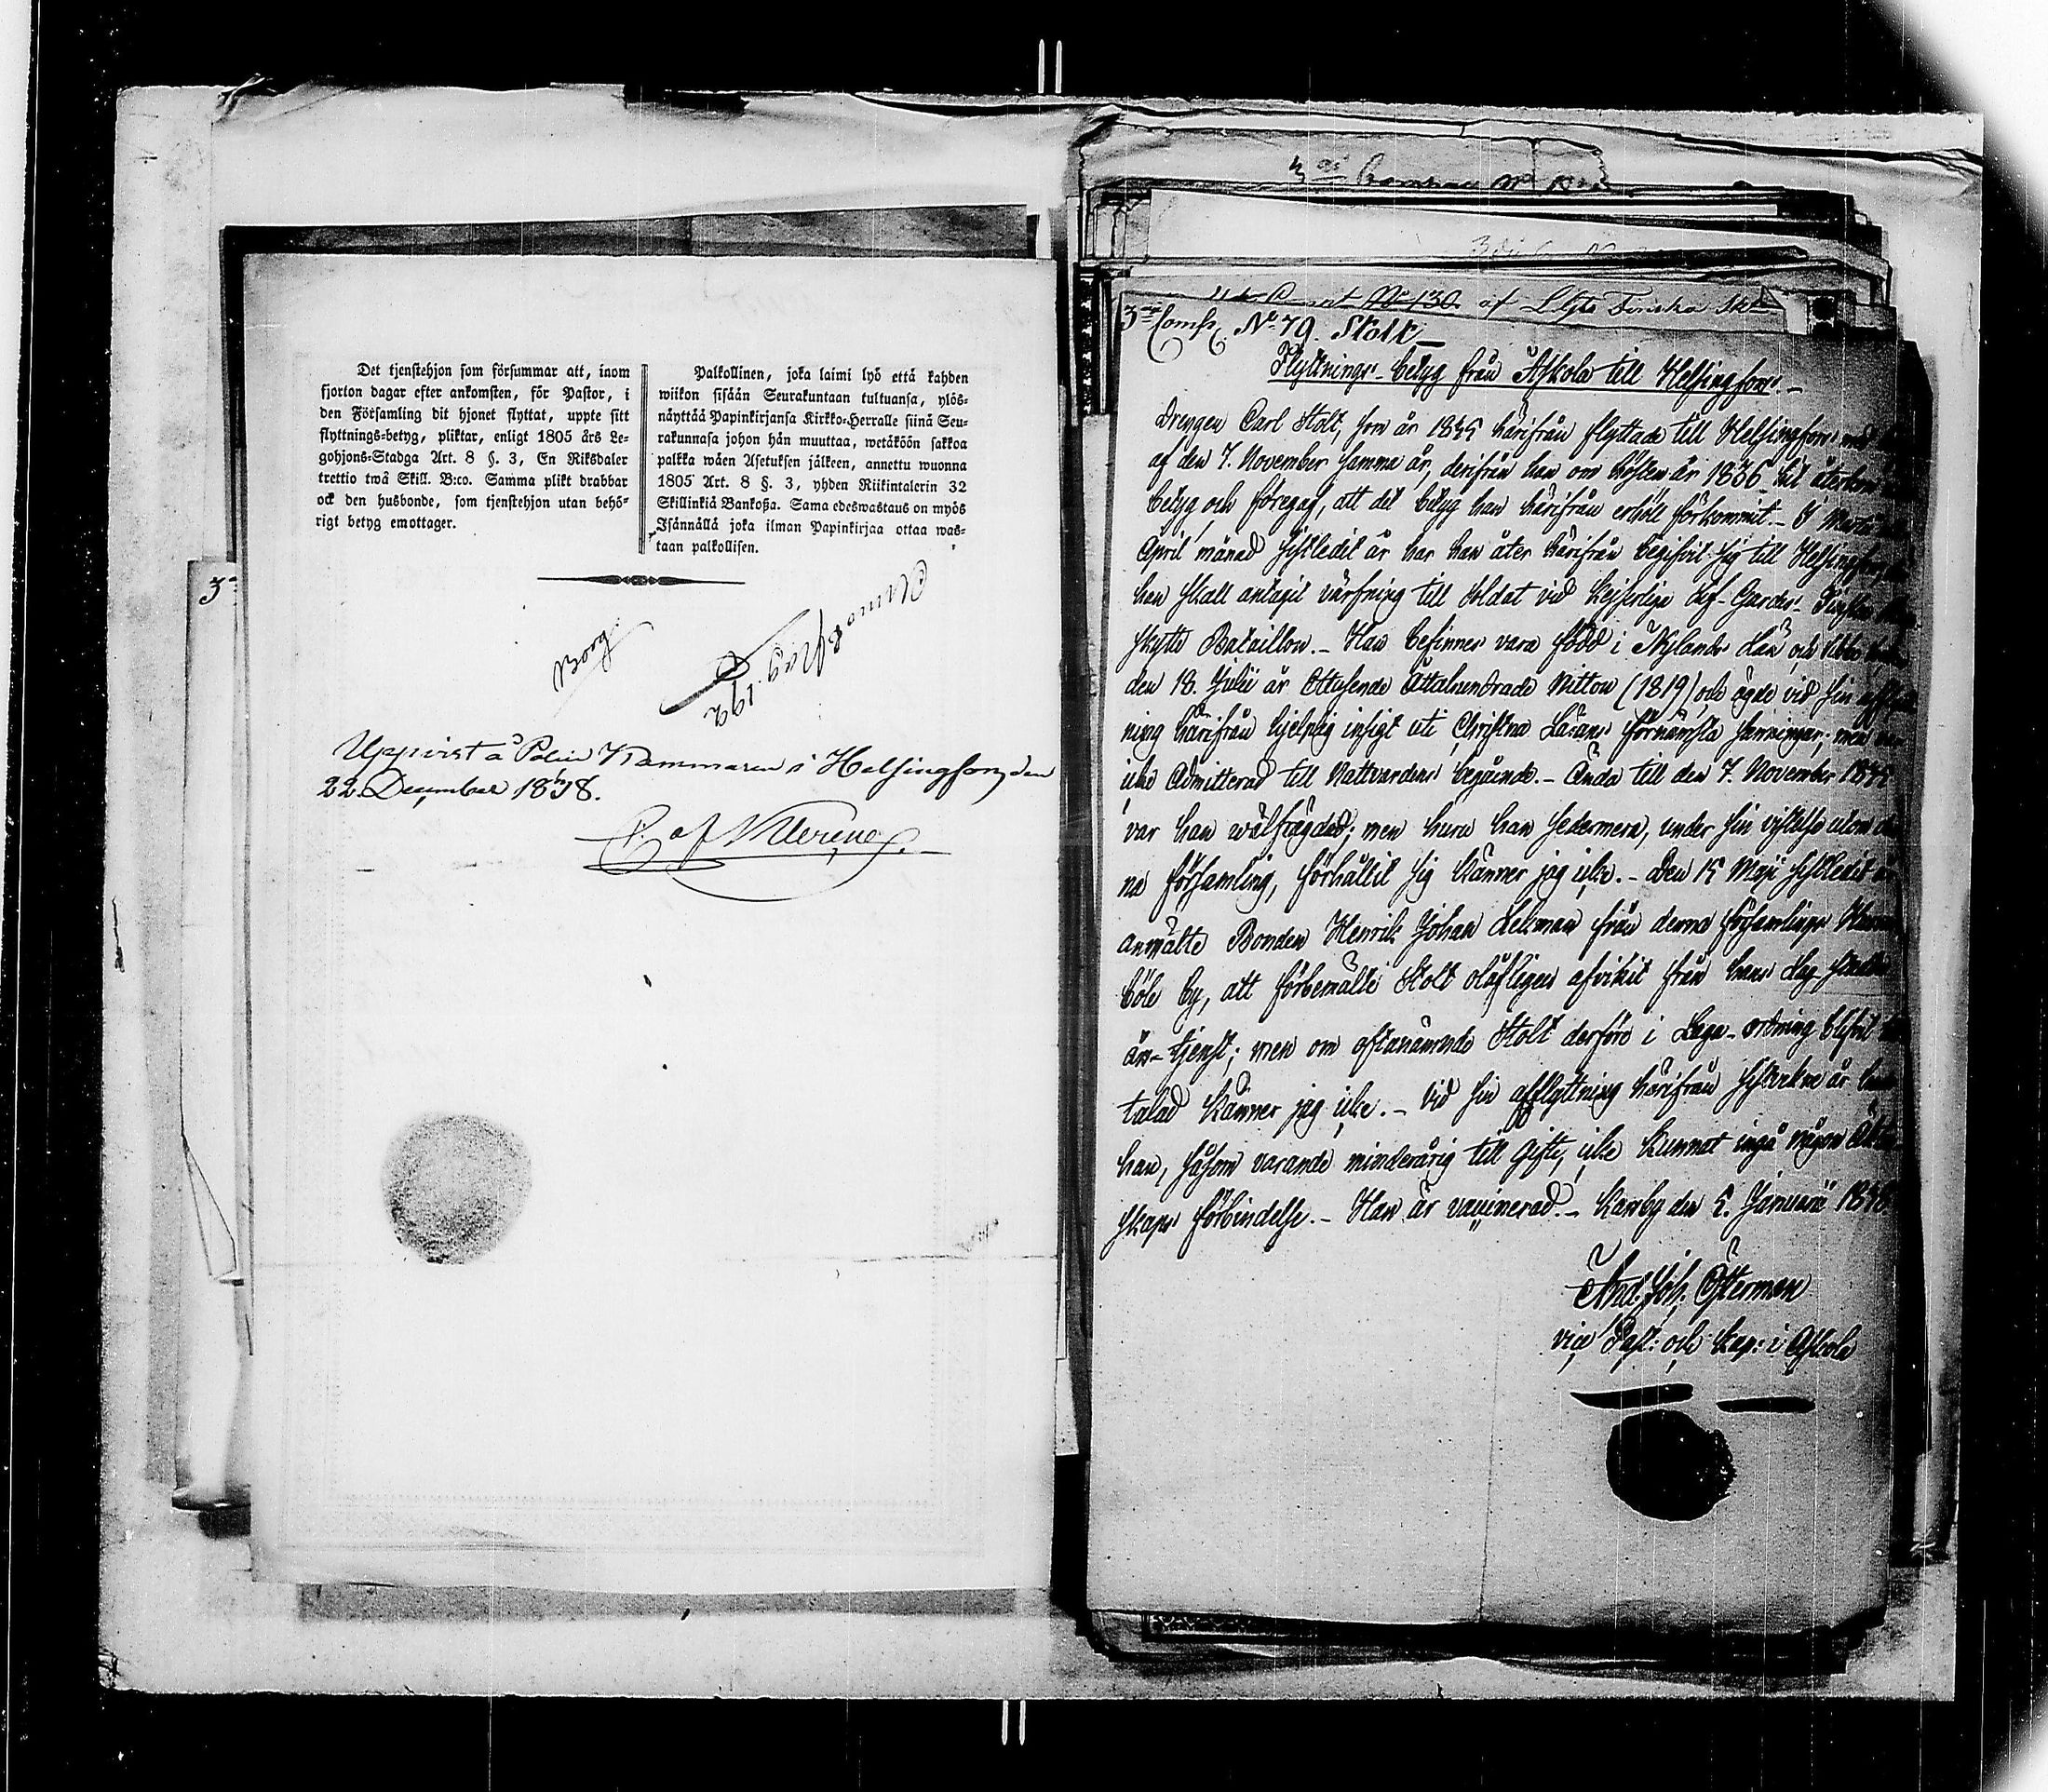 Det tjenstehjon som försummar att, inom
fjorton dagar efter ankomsten, för Pastor, i
den Församling dit hjonet flyttat, uppte sitt
flyttnings-betyg, pliktar, enligt 1805 års Le-
gohjons-Stadga Art. 8 §. 3, En Riksdaler
trettio twå Skill. B:co. Samma plikt drabbar
ock den husbonde, som tjenstehjon utan behö-
rigt betyg emottager.
Palkollinen, joka laimi lyö että kahden
wiikon sisään Seurakuntaan tultuansa, ylös-
näyttää Papinkirjansa Kirkko-Herralle siinä Seu-
rakunnasa johon hän muuttaa, wetäköön sakkoa
palkka wäen Asetuksen jälkeen, annettu wuonna
1805 Art. 8 §. 3, yhden Riikintalerin 32
Skillinkiä Bankoßa. Sama edeswastaus on myös
Isännällä joka ilman Papinkirjaa ottaa was-
taan palkollisen.
Borg
192
Uppvist å Police Kammaren i Helsingfors, den
22 December 1838.
3
3 Comp. No 79. Stolt
Flyttnings-betyg från Askola till Helsingfors.
Drengen Carl Stolt, som år 1835 härifrån flyttade till Helsingfors med
af den 7. November samma år, derifrån han om hösten år 1836 hit återkom
betyg och föregaf, att det betyg han härifrån erhöll förkommit. I Martii
April månad sistledit år har han åter härifrån begifvit sig till Helsingfors,
han skall antagit värfning till Soldat vid Kejserliga Lif-Gardes Finska
skytte Bataillon. Han befinnes vara född i Nylands Län och
den 18. Julii år Ettusende Åttahundrade Nitton (1819) och ägde vid sin afflytt
ning härifrån hjelplig insigt uti Christna Lärans förnämsta sanningar; men var
icke Admitterad till Nattvardens begående. Ända till den 7. November 1835
var han wälfrägdad; men huru han sedermera, under sin vistelse utom den
na församling, förhållit sig känner jag icke. Den 15 Maji sistledit år
anmälte Bonden Henrik Johan Lekman från denna församlings
böle by, att förbemälte Stolt olofligen afvikit från hans
års-tjenst; men om oftanämnde Stolt derföre i Laga ordning blifvit
talad känner jag icke. Vid sin afflyttning härifrån sistvekne år
han, såsom varande minderårig till gifte, icke kunnat ingå någon Äkten
skaps förbindelse. Han är vaccinerad. Karsby den 5. Januarii 1838
And. Joh. Österman
vice Past: och Kap: i Askola